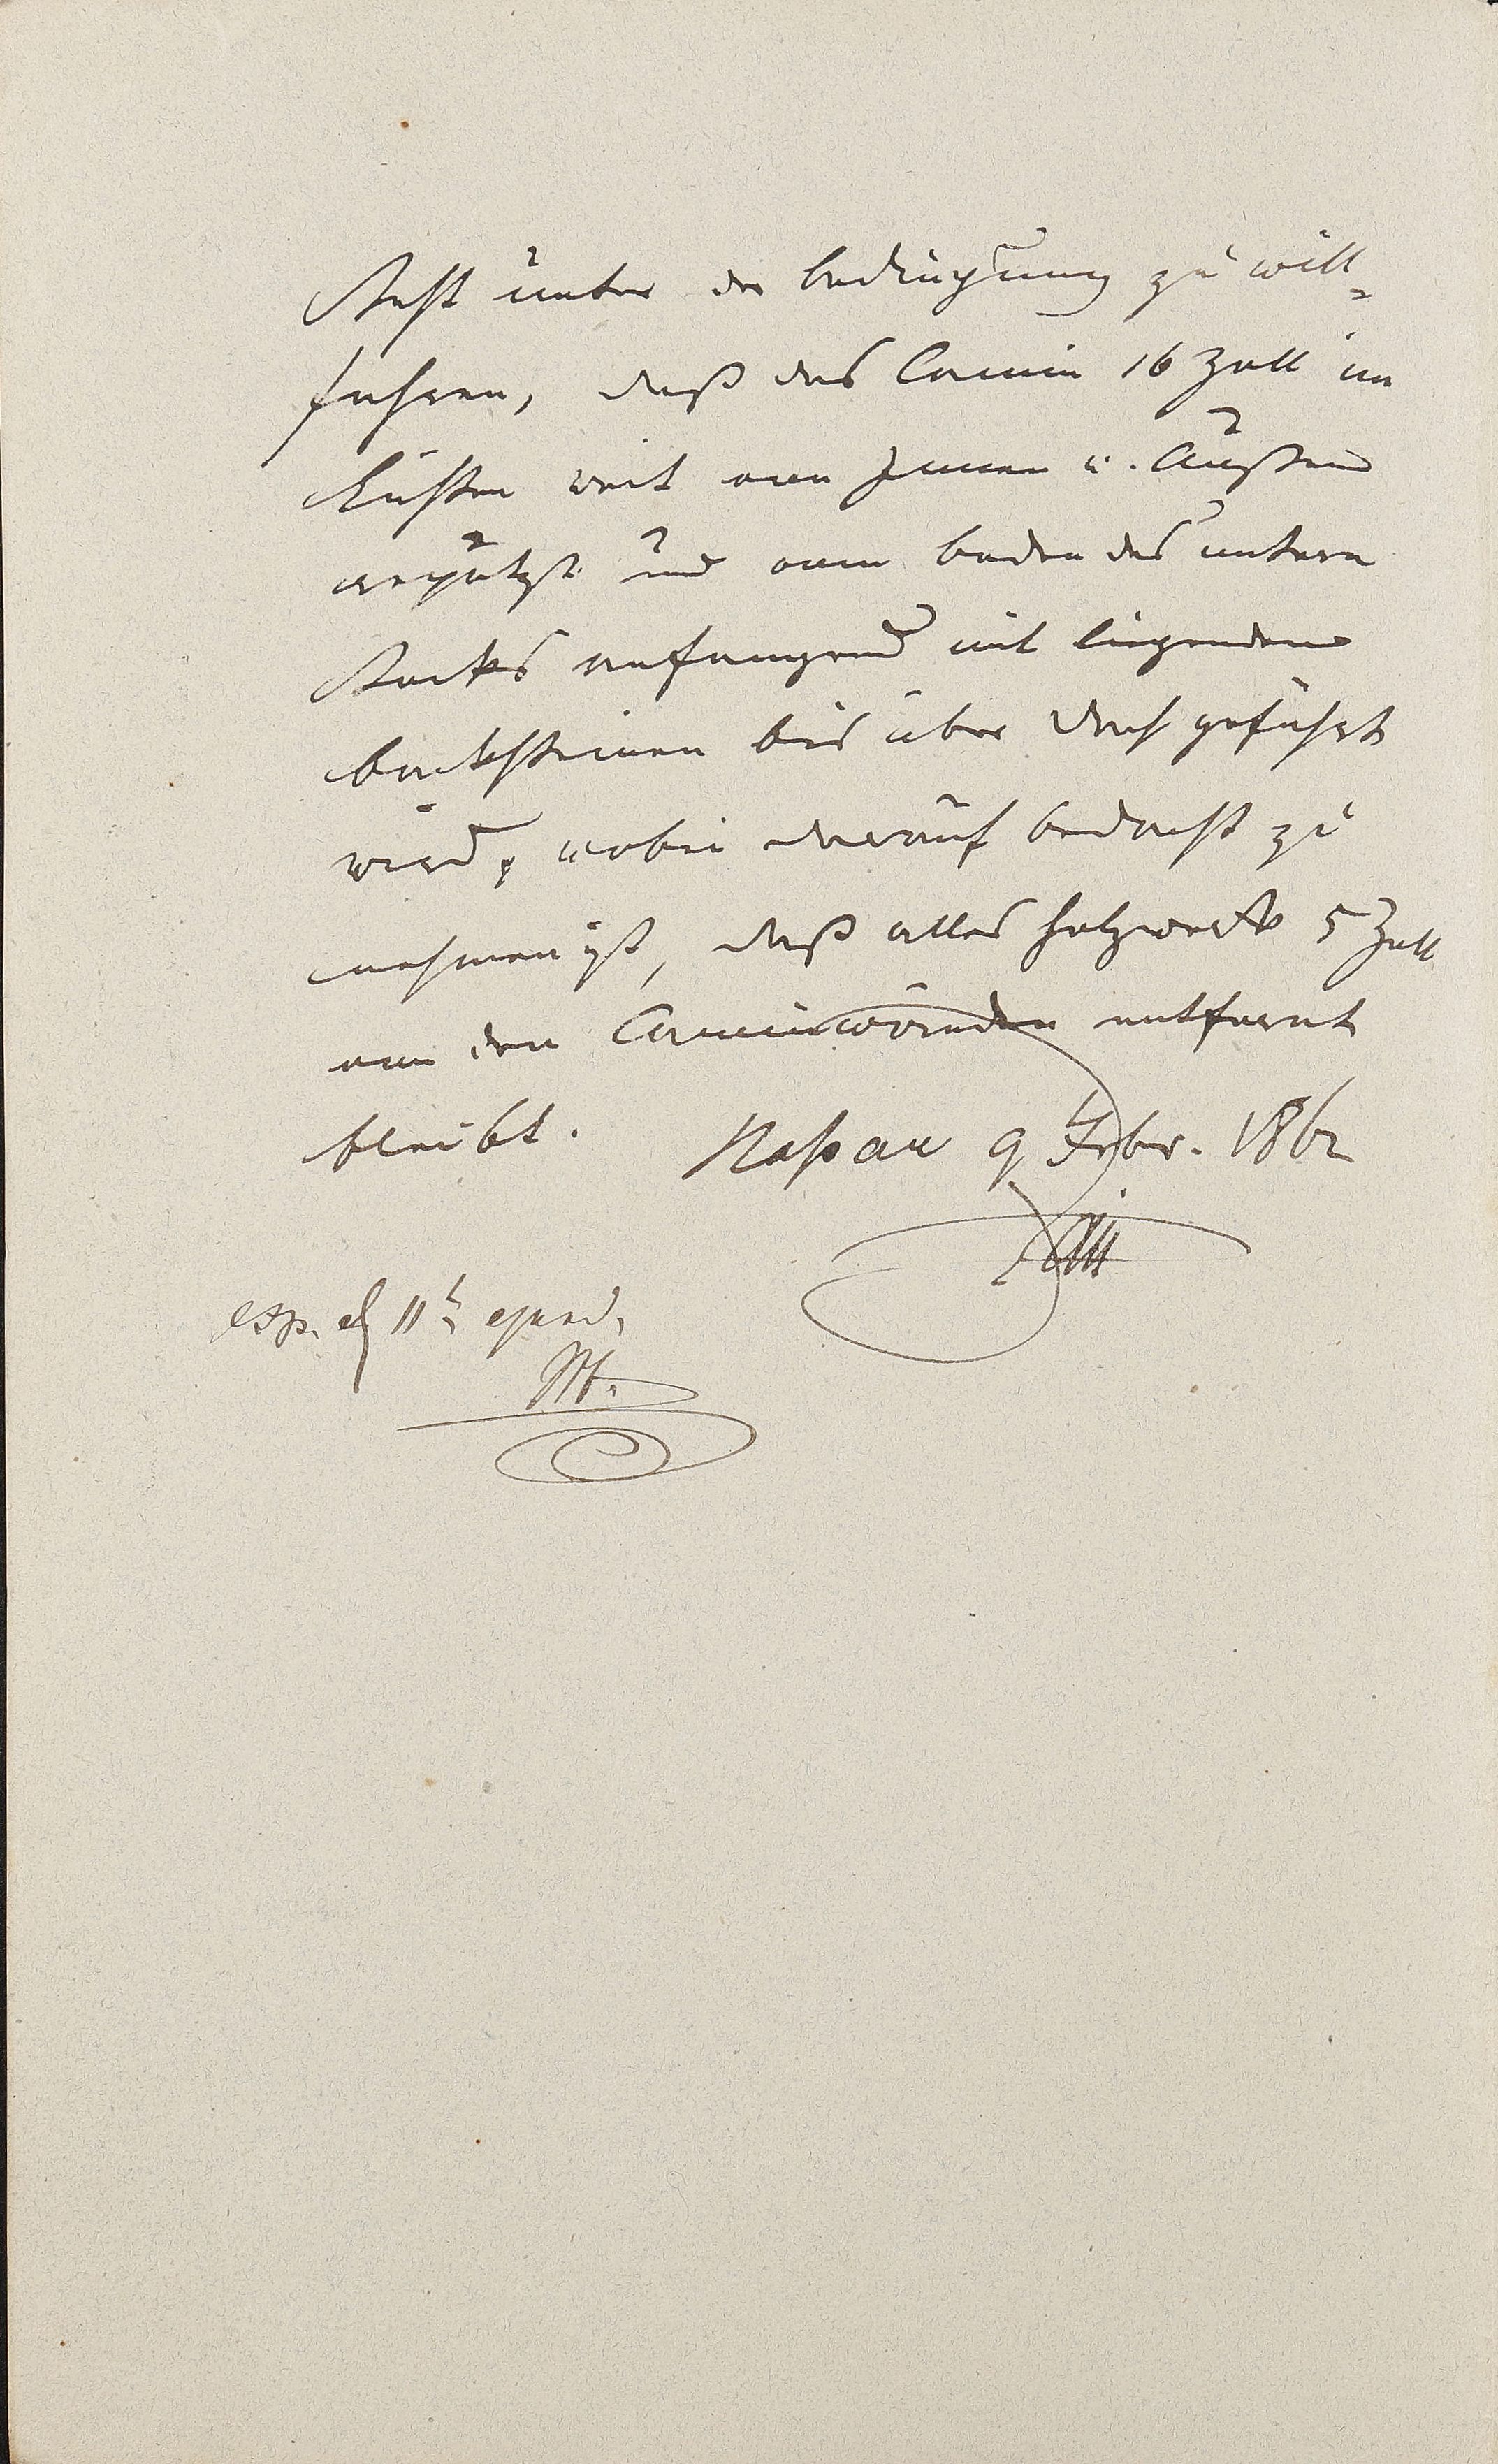 steht unter der Bedingung zu will-
fahren, daß das Camin 16 Zoll im
Lichten weit von Innen u. Außen
verputzt und vom Boden des untern
Stocks anfangend mit liegenden
Backsteinen bis über Dach geführt
wird, wobei darauf bedacht zu
nehmen ist, daß alles Holzwerk 5 Zoll
von den Caminwänden entfernt
bleibt. Naßau 9 Febr. 1862
exp. d 11t ejusd.